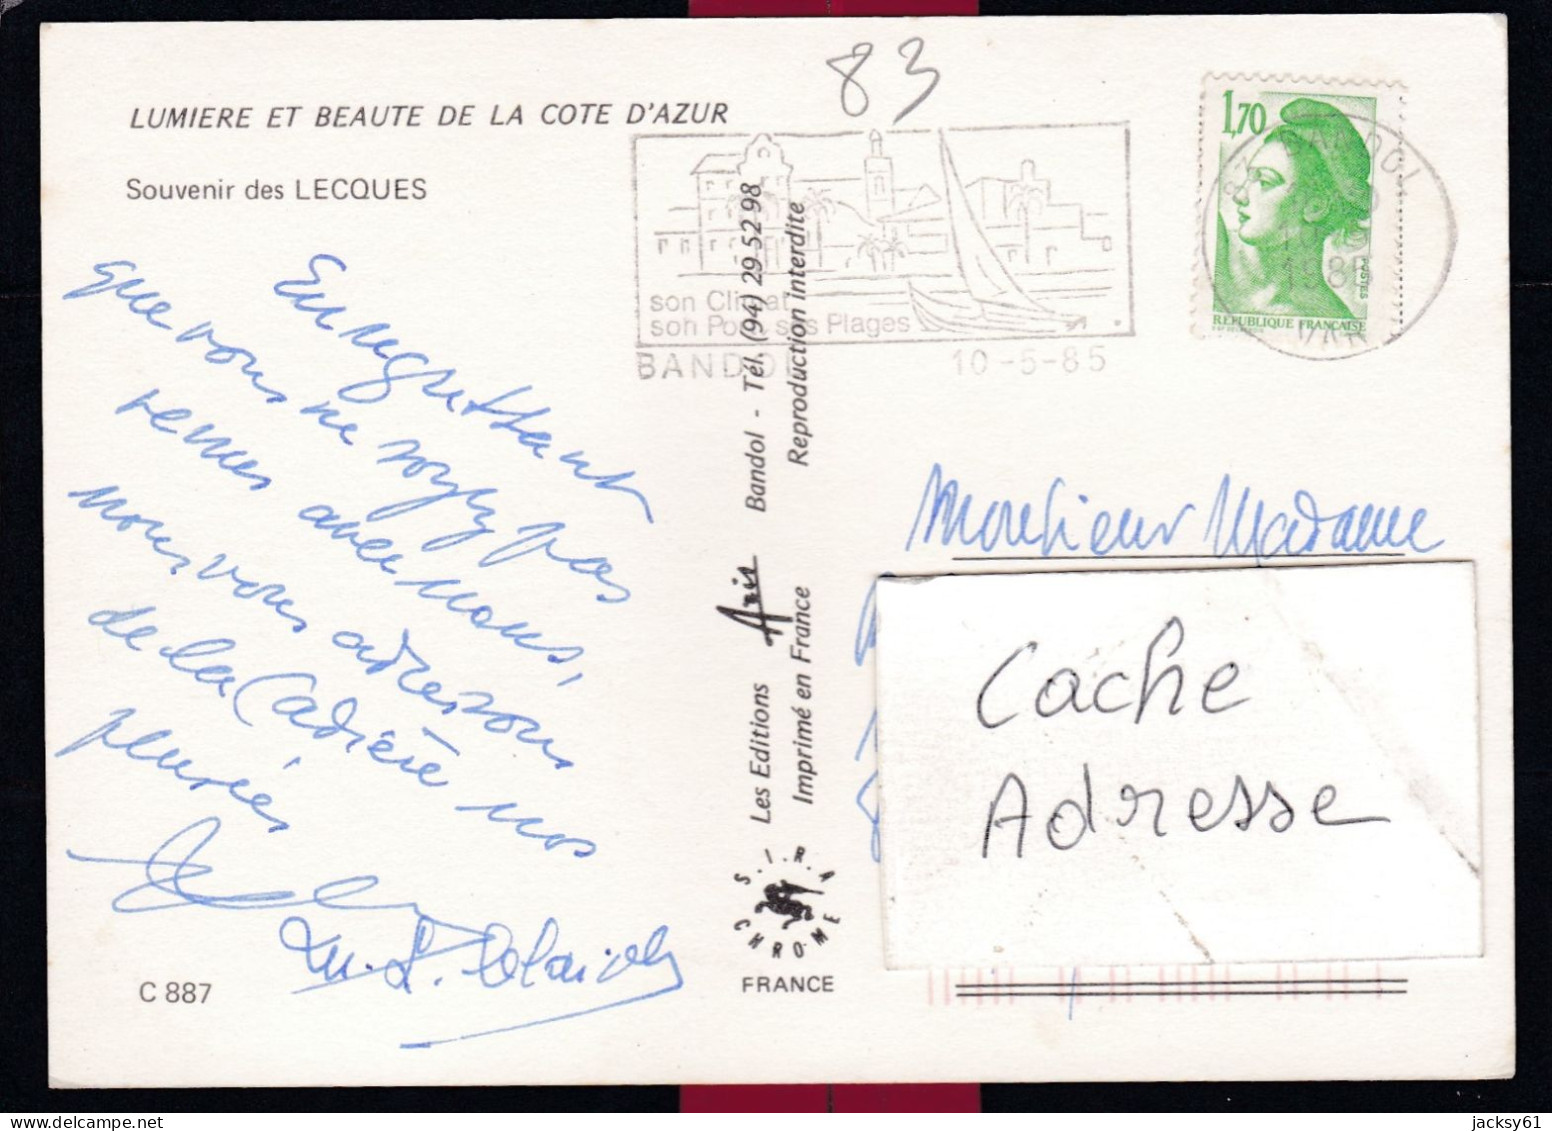 83
LUMIERE ET BEAUTE DE LA COTE D'AZUR
Souvenir des LECQUES
son Climat
son Port ses Plages
BANDOL 10-5-85
1,70
POSTES
REPUBLIQUE FRANÇAISE
BANDOL
1985
VAR
En regrettant
que vous ne soyez pas
venus avec nous,
nous vous adressons
de la Cadière nos
pensées
Les Editions Aris Bandol - Tél. (94) 29 52 98
Imprimé en France Reproduction interdite
S.I.R.A
CHROME
FRANCE
C 887
Monsieur Madame
Cache
Adresse
jacksy61